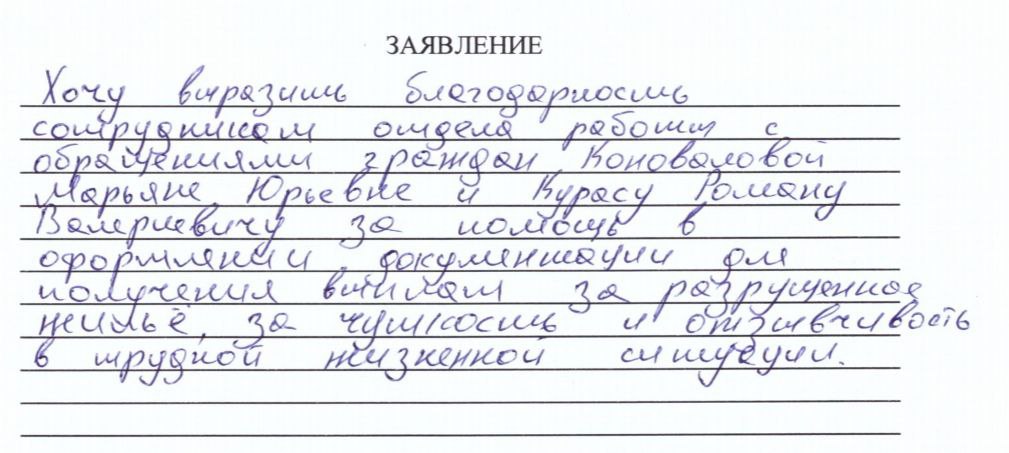 ЗАЯВЛЕНИЕ
Хочу выразить благодарность
сотрудникам отдела работы с
обращениями граждан Коноваловой
Марьяне Юрьевне и Курасу Роману
Валериевичу за помощь в
оформлении документации для
получения выплат за разрушенное
жильё, за чуткость и отзывчивость
в трудной жизненной ситуации.